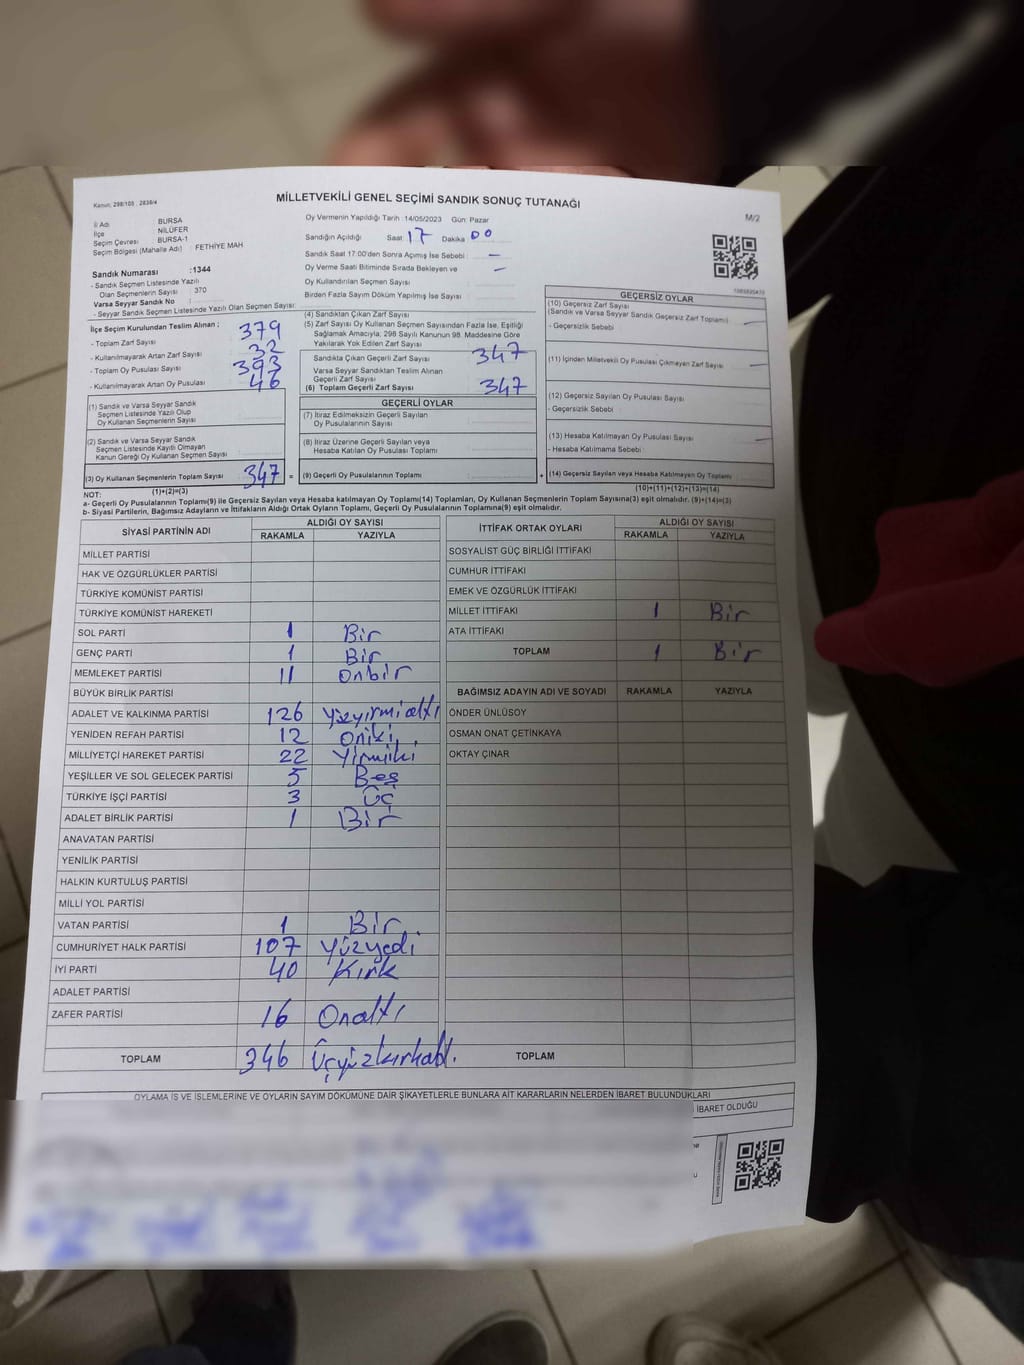 MİLLETVEKİLİ GENEL SEÇİMİ SANDIK SONUÇ TUTANAĞI
Kanun: 298/105 , 2839/4
M/2
İl Adı : BURSA
İlçe : NİLÜFER
Seçim Çevresi : BURSA-1
Seçim Bölgesi (Mahalle Adı) : FETHİYE MAH
Oy Vermenin Yapıldığı Tarih :14/05/2023 Gün: Pazar
Sandığın Açıldığı Saat: 17 Dakika 00
Sandık Saat 17:00'den Sonra Açımış İse Sebebi : –
Oy Verme Saati Bitiminde Sırada Bekleyen ve –
Oy Kullandırılan Seçmen Sayısı
Birden Fazla Sayım Döküm Yapılmış İse Sayısı
Sandık Numarası :1344
- Sandık Seçmen Listesinde Yazılı
Olan Seçmenlerin Sayısı : 370
Varsa Seyyar Sandık No :
- Seyyar Sandık Seçmen Listesinde Yazılı Olan Seçmen Sayısı:
İlçe Seçim Kurulundan Teslim Alınan ;
- Toplam Zarf Sayısı 379
- Kullanılmayarak Artan Zarf Sayısı 32
- Toplam Oy Pusulası Sayısı 393
- Kullanılmayarak Artan Oy Pusulası 46
(1) Sandık ve Varsa Seyyar Sandık
Seçmen Listesinde Yazılı Olup
Oy Kullanan Seçmenlerin Sayısı
(2) Sandık ve Varsa Seyyar Sandık
Seçmen Listesinde Kayıtlı Olmayan
Kanun Gereği Oy Kullanan Seçmen Sayısı
(3) Oy Kullanan Seçmenlerin Toplam Sayısı 347 =
(1)+(2)=(3)
(4) Sandıktan Çıkan Zarf Sayısı
(5) Zarf Sayısı Oy Kullanan Seçmen Sayısından Fazla İse, Eşitliği
Sağlamak Amacıyla, 298 Sayılı Kanunun 98. Maddesine Göre
Yakılarak Yok Edilen Zarf Sayısı
Sandıkta Çıkan Geçerli Zarf Sayısı 347
Varsa Seyyar Sandıktan Teslim Alınan
Geçerli Zarf Sayısı
(6) Toplam Geçerli Zarf Sayısı 347
GEÇERLİ OYLAR
(7) İtiraz Edilmeksizin Geçerli Sayılan
Oy Pusulalarının Sayısı
(8) İtiraz Üzerine Geçerli Sayılan veya
Hesaba Katılan Oy Pusulası Toplamı
(9) Geçerli Oy Pusulalarının Toplamı +
GEÇERSİZ OYLAR
(10) Geçersiz Zarf Sayısı
(Sandık ve Varsa Seyyar Sandık Geçersiz Zarf Toplamı) –
- Geçersizlik Sebebi
(11) İçinden Milletvekili Oy Pusulası Çıkmayan Zarf Sayısı –
(12) Geçersiz Sayılan Oy Pusulası Sayısı
- Geçersizlik Sebebi :
(13) Hesaba Katılmayan Oy Pusulası Sayısı –
- Hesaba Katılmama Sebebi :
(14) Geçersiz Sayılan veya Hesaba Katılmayan Oy Toplamı
(10)+(11)+(12)+(13)=(14)
NOT:
a- Geçerli Oy Pusulalarının Toplamı(9) ile Geçersiz Sayılan veya Hesaba katılmayan Oy Toplamı(14) Toplamları, Oy Kullanan Seçmenlerin Toplam Sayısına(3) eşit olmalıdır. (9)+(14)=(3)
b- Siyasi Partilerin, Bağımsız Adayların ve İttifakların Aldığı Ortak Oyların Toplamı, Geçerli Oy Pusulalarının Toplamına(9) eşit olmalıdır.
SİYASİ PARTİNİN ADI ALDIĞI OY SAYISI
RAKAMLA YAZIYLA
MİLLET PARTİSİ
HAK VE ÖZGÜRLÜKLER PARTİSİ
TÜRKİYE KOMÜNİST PARTİSİ
TÜRKİYE KOMÜNİST HAREKETİ
SOL PARTİ 1 Bir
GENÇ PARTİ 1 Bir
MEMLEKET PARTİSİ 11 Onbir
BÜYÜK BİRLİK PARTİSİ
ADALET VE KALKINMA PARTİSİ 126 Yüzyirmialtı
YENİDEN REFAH PARTİSİ 12 Oniki
MİLLİYETÇİ HAREKET PARTİSİ 22 Yirmiiki
YEŞİLLER VE SOL GELECEK PARTİSİ 5 Beş
TÜRKİYE İŞÇİ PARTİSİ 3 Üç
ADALET BİRLİK PARTİSİ 1 Bir
ANAVATAN PARTİSİ
YENİLİK PARTİSİ
HALKIN KURTULUŞ PARTİSİ
MİLLİ YOL PARTİSİ
VATAN PARTİSİ 1 Bir
CUMHURİYET HALK PARTİSİ 107 Yüzyedi
İYİ PARTİ 40 Kırk
ADALET PARTİSİ
ZAFER PARTİSİ 16 Onaltı
TOPLAM 346 Üçyüzkırkaltı.
İTTİFAK ORTAK OYLARI ALDIĞI OY SAYISI
RAKAMLA YAZIYLA
SOSYALİST GÜÇ BİRLİĞİ İTTİFAKI
CUMHUR İTTİFAKI
EMEK VE ÖZGÜRLÜK İTTİFAKI
MİLLET İTTİFAKI 1 Bir
ATA İTTİFAKI
TOPLAM 1 Bir
BAĞIMSIZ ADAYIN ADI VE SOYADI RAKAMLA YAZIYLA
ÖNDER ÜNLÜSOY
OSMAN ONAT ÇETİNKAYA
OKTAY ÇINAR
TOPLAM
OYLAMA İŞ VE İŞLEMLERİNE VE OYLARIN SAYIM DÖKÜMÜNE DAİR ŞİKAYETLERLE BUNLARA AİT KARARLARIN NELERDEN İBARET BULUNDUKLARI
İBARET OLDUĞU